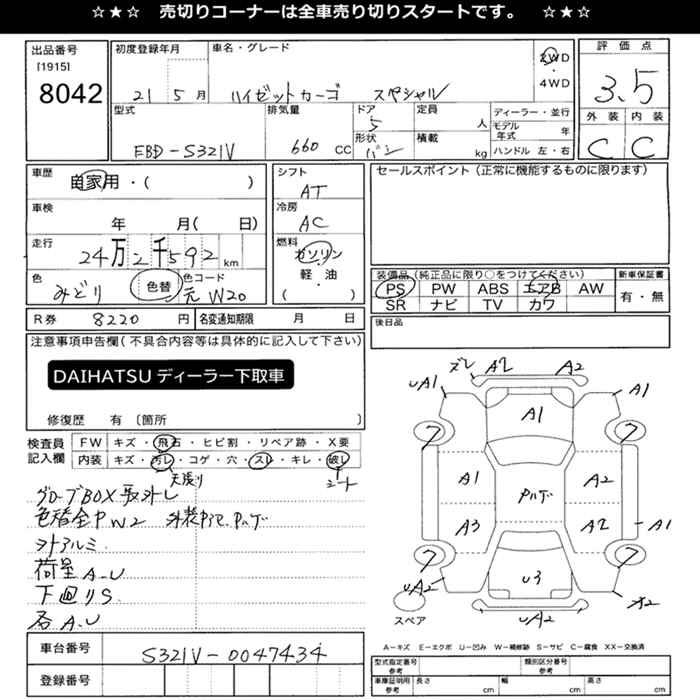 ☆★☆ 売切りコーナーは全車売り切りスタートです。 ☆★☆
出品番号
[1915]
8042
初度登録年月
21 5 月
車名・グレード
ハイゼットカーゴ スペシャル
2WD
・
4WD
評価点
3.5
外装 内装
C C
型式
EBD-S321V
排気量
660 CC
ドア
5
形状
バン
定員
人
積載
kg
ディーラー・並行
モデル年式 年
ハンドル 左・右
車歴
自家用・( )
車検
年 月( 日)
走行
24万2千592 km
色
みどり
色替
色コード
元 W20
シフト
AT
冷房
AC
燃料
ガソリン
・
軽・油
( )
セールスポイント(正常に機能するものに限ります)
装備品(純正品に限り○をつけてください)
PS PW ABS エアB AW
SR ナビ TV カワ
新車保証書
有・無
R券 8220 円 名変通知期限 月 日
後日品
注意事項申告欄(不具合内容等は具体的に記入して下さい)
DAIHATSU ディーラー下取車
修復歴 有 〔箇所 〕
検査員
記入欄
FW キズ・飛石・ヒビ割・リペア跡・X要
内装 キズ・汚レ・コゲ・穴・スレ・キレ・破レ
天張り
シート
グローブBOX取外し
色替全中W2 外装中アマ Pハゲ
外アルミ
荷室A・U
下廻りS
各A・U
ズレ A2 A2
UA1 A1
A1
A1 Pハゲ A2
A3 A2 A1
U3
UA2 A2
UA2
スペア
A-キズ E-エクボ U-凹み W-補修跡 S-サビ C-腐食 XX-交換済
車台番号 S321V-0047434
登録番号
型式指定番号 参考
類別区分番号 参考
車庫証明用 参考 長さ cm 幅 cm 高さ cm